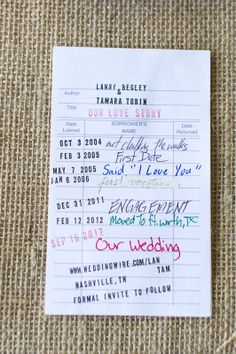 Author LANNY BEGLEY
&
TAMARA TOBIN
Title
OUR LOVE STORY
Date Loaned BORROWER'S NAME Date Returned
OCT 3 2004 met the
FEB 3 2005 First Date
MAY 7 2005 Said, "I Love You"
JAN 6 2006 first
DEC 31 2011 ENGAGEMENT
FEB 12 2012 Moved to ft. worth, TX
SEP 16 2012 Our Wedding
WWW.WEDDINGWIRE.COM/LAN
TAM
NASHVILLE, TN
FORMAL INVITE TO FOLLOW